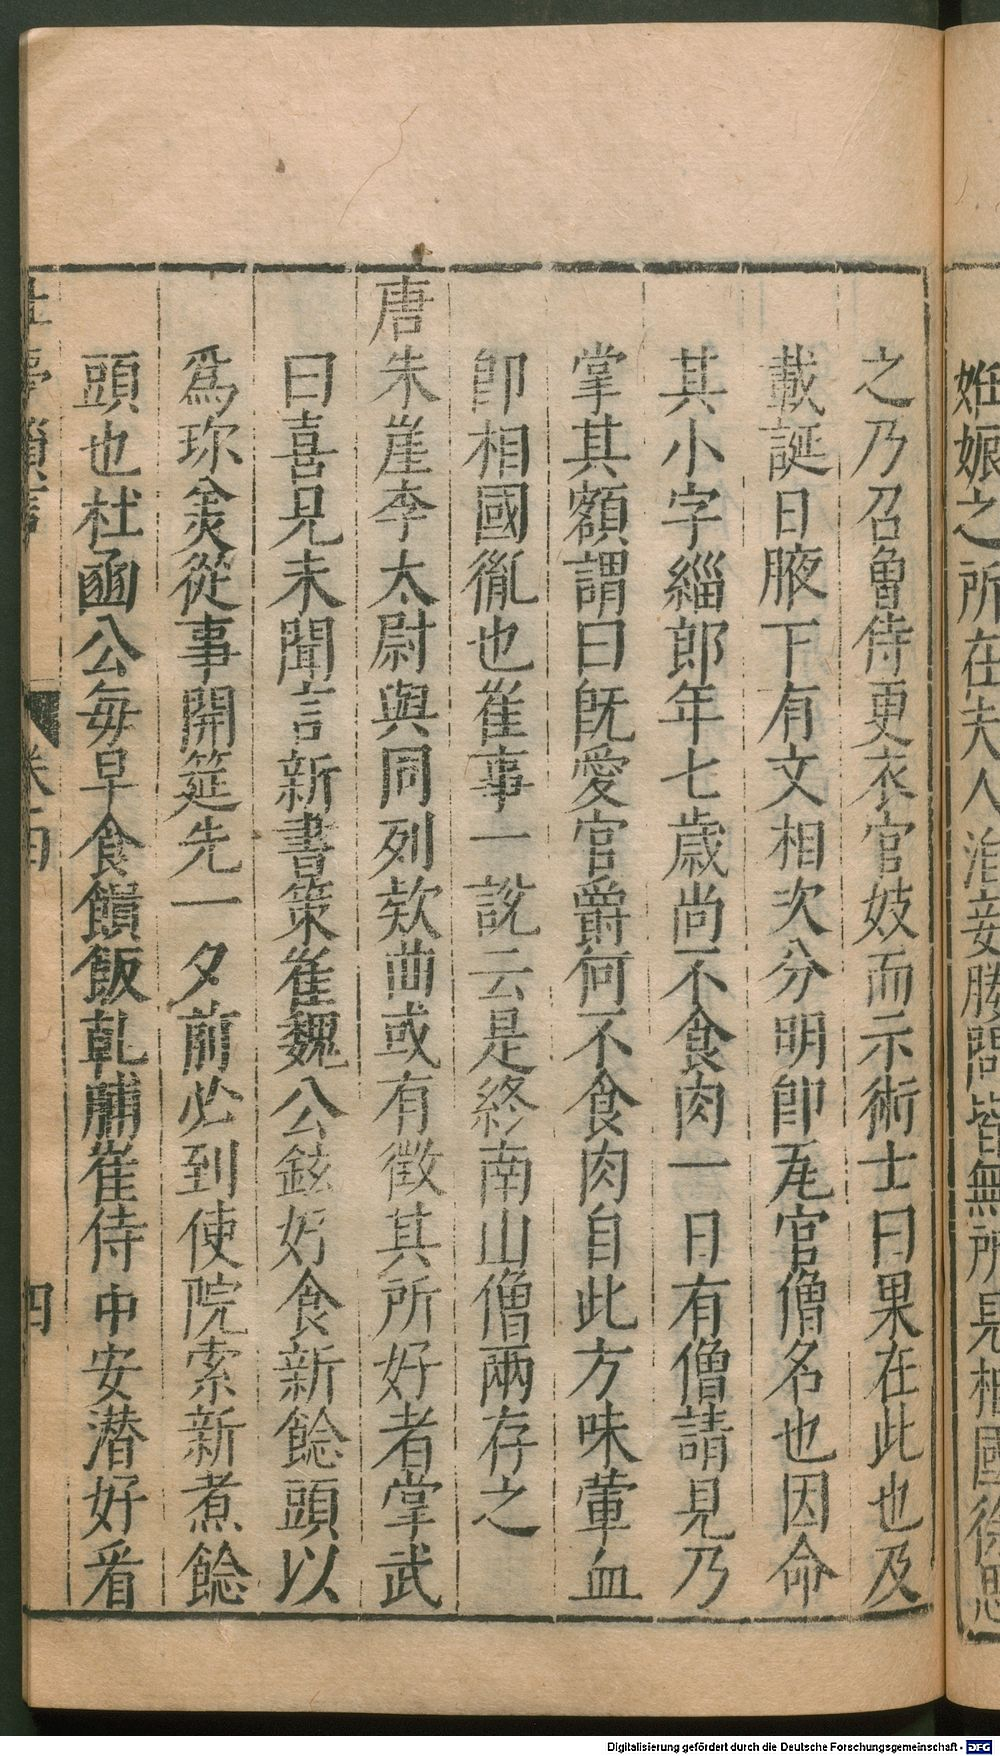 姙娠之所在夫人洎妾媵問皆無所見相國徐思
之乃召魯侍更衣官妓而示術士曰果在此也及
載誕日腋下有文相次分明卽瓦官僧名也因命
其小字緇郎年七歲尚不食肉一日有僧請見乃
掌其額謂曰旣愛官爵何不食肉自此方味葷血
卽相國胤也崔事一說云是終南山僧兩存之
唐朱崖李太尉與同列欵曲或有徵其所好者掌武
曰喜見未聞言新書策崔魏公鉉好食新餤頭以
爲珍羙從事開筵先一夕前必到使院索新煮餤
頭也杜豳公每早食饙飯乹脯崔侍中安潜好看
夢瑣言
卷
四
Digitalisierung gefördert durch die Deutsche Forschungsgemeinschaft - DFG